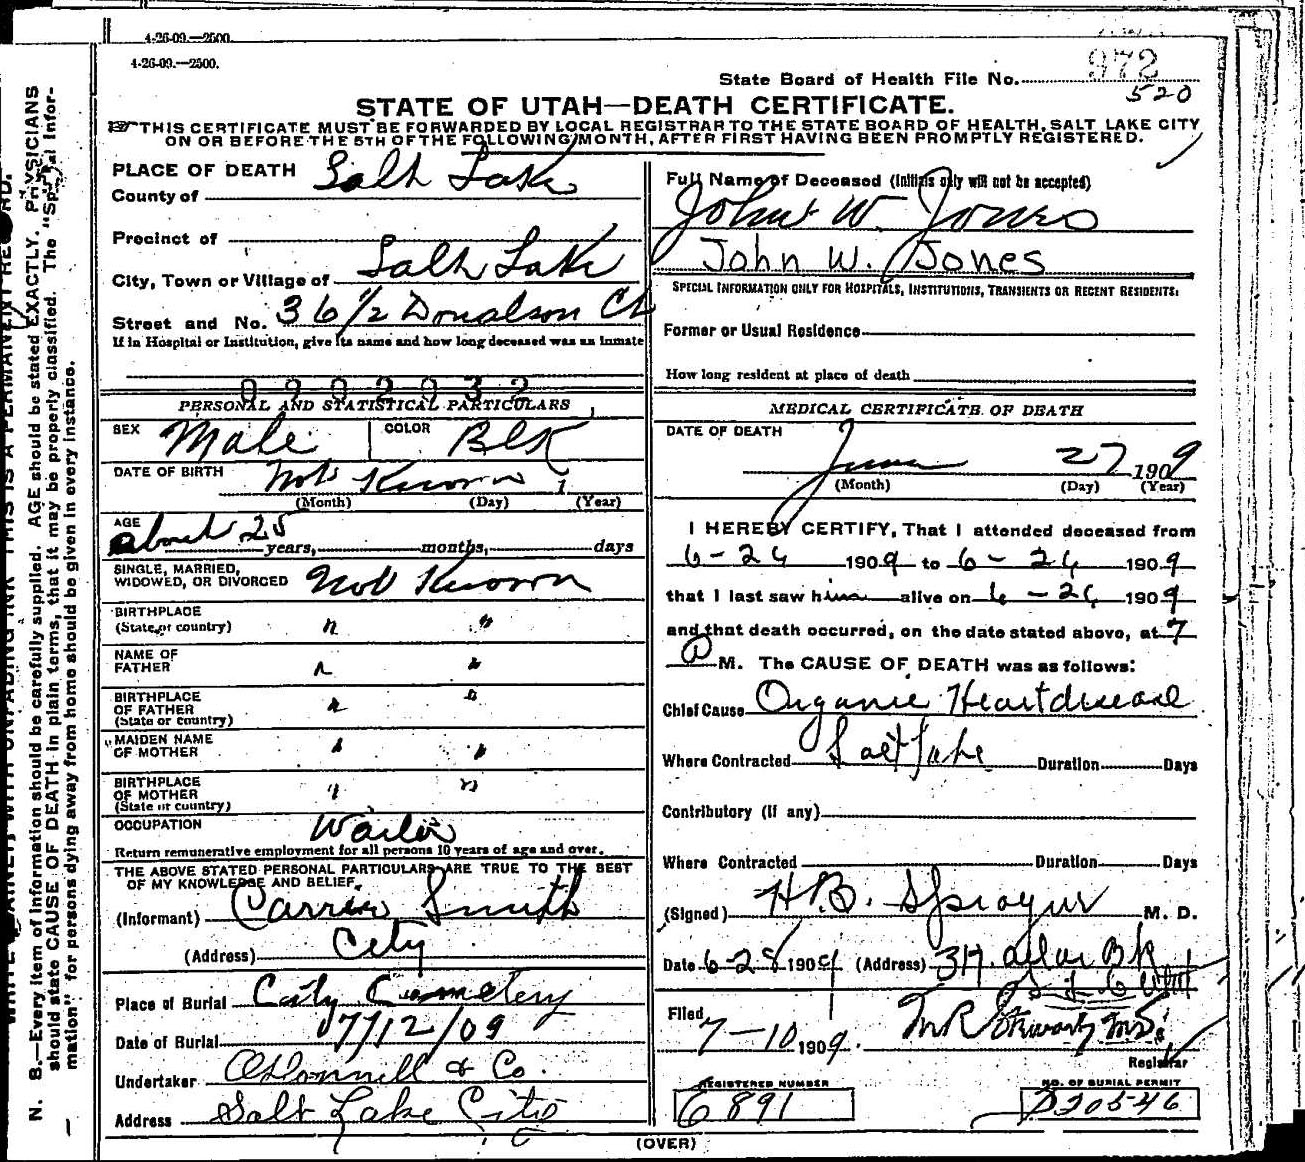 4-26-09.—2500.
4-26-09.—2500.
State Board of Health File No. 972
520
STATE OF UTAH—DEATH CERTIFICATE.
THIS CERTIFICATE MUST BE FORWARDED BY LOCAL REGISTRAR TO THE STATE BOARD OF HEALTH, SALT LAKE CITY
ON OR BEFORE THE 5TH OF THE FOLLOWING MONTH, AFTER FIRST HAVING BEEN PROMPTLY REGISTERED.
PLACE OF DEATH
County of Salt Lake
Precinct of
City, Town or Village of Salt Lake
Street and No. 36 1/2 Donalson Ct
If in Hospital or Institution, give its name and how long deceased was an inmate
0902932
PERSONAL AND STATISTICAL PARTICULARS
SEX Male COLOR Blk
DATE OF BIRTH Not Known 1
(Month) (Day) (Year)
AGE about 25 years, months, days
SINGLE, MARRIED,
WIDOWED, OR DIVORCED Not Known
BIRTHPLACE
(State or country) " "
NAME OF
FATHER " "
BIRTHPLACE
OF FATHER " "
(State or country)
MAIDEN NAME
OF MOTHER " "
BIRTHPLACE
OF MOTHER " "
(State or country)
OCCUPATION Waiter
Return remunerative employment for all persons 10 years of age and over.
THE ABOVE STATED PERSONAL PARTICULARS ARE TRUE TO THE BEST
OF MY KNOWLEDGE AND BELIEF.
(Informant) Carrie Smith
(Address) City
Place of Burial City Cemetery
Date of Burial 7/12/09
Undertaker O'Donnell & Co.
Address Salt Lake City
Full Name of Deceased (Initials only will not be accepted)
John W. Jones
John W. Jones
SPECIAL INFORMATION ONLY FOR HOSPITALS, INSTITUTIONS, TRANSIENTS OR RECENT RESIDENTS:
Former or Usual Residence
How long resident at place of death
MEDICAL CERTIFICATE OF DEATH
DATE OF DEATH
June 27 1909
(Month) (Day) (Year)
I HEREBY CERTIFY, That I attended deceased from
6-26 1909 to 6-26 1909
that I last saw him alive on 6-26 1909
and that death occurred, on the date stated above, at 7
A M. The CAUSE OF DEATH was as follows:
Chief Cause Organic Heart disease
Where Contracted Salt Lake Duration Days
Contributory (if any)
Where Contracted Duration Days
(Signed) H.B. Sprague M. D.
Date 6-28 1909 (Address) Bk
Filed
7-10 1909. M.D.
Registrar
REGISTERED NUMBER
6891
NO. OF BURIAL PERMIT
D20546
(OVER)
N. B.—Every item of information should be carefully supplied. AGE should be stated EXACTLY. PHYSICIANS
should state CAUSE OF DEATH in plain terms, that it may be properly classified. The "Special Infor-
mation" for persons dying away from home should be given in every instance.
THIS IS A PERMANENT RECORD.